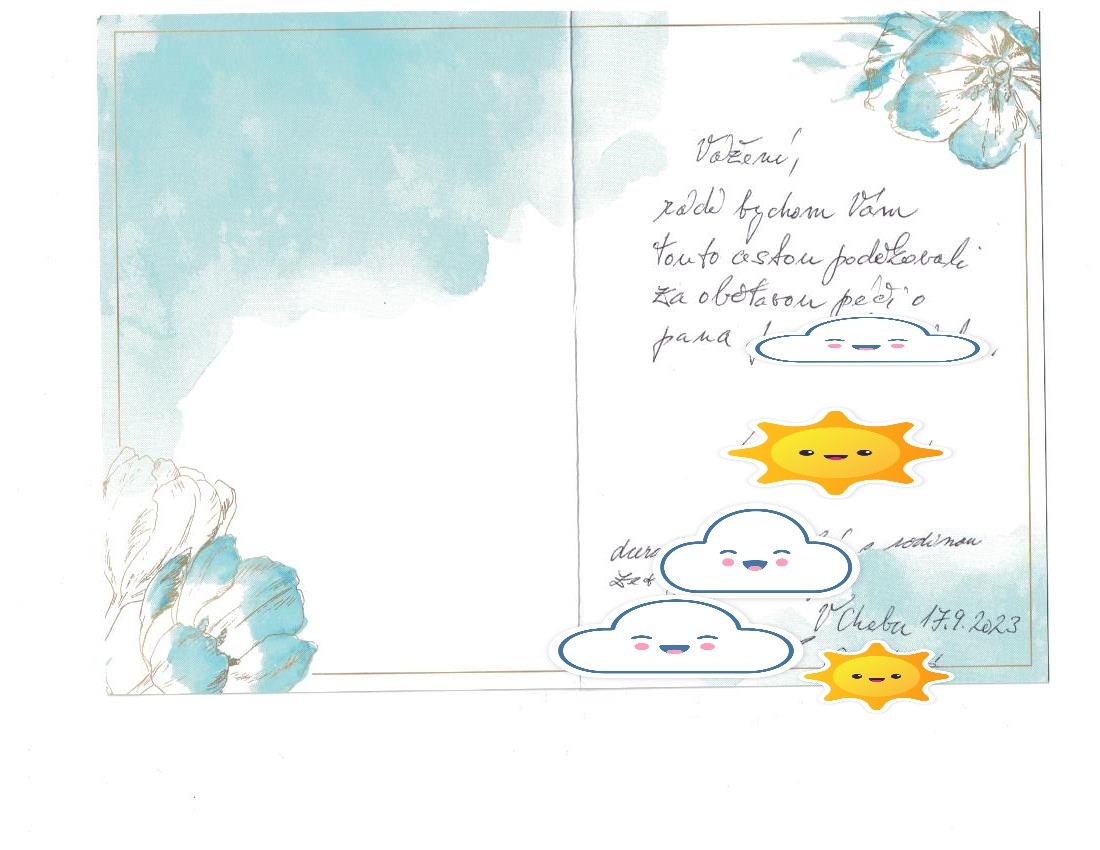 Vážení,
rádi bychom Vám
touto cestou poděkovali
za obětavou péči o
pana
s rodinou
V Chebu 17.9.2023